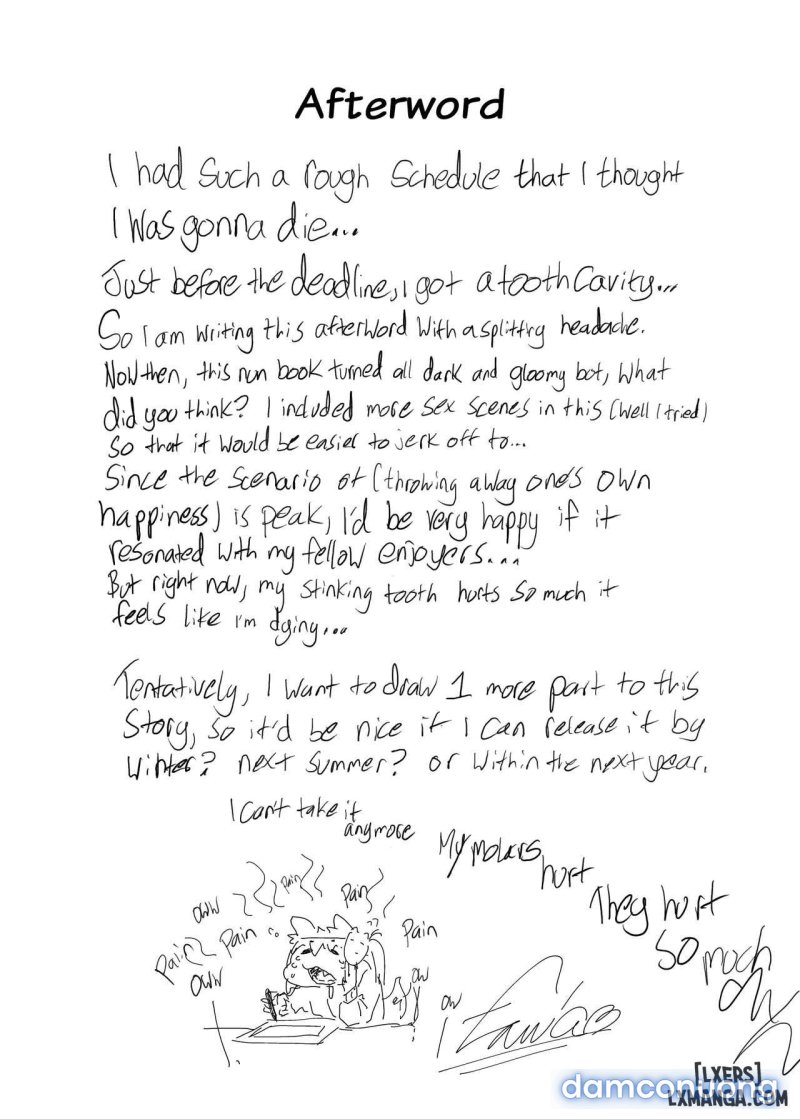 Afterword
I had such a rough schedule that I thought
I was gonna die...
Just before the deadline, I got a tooth cavity...
So I am writing this afterword with a splittry headache.
Now then, this nun book turned all dark and gloomy bot, what
did you think? I included more sex scenes in this (well I tried)
so that it would be easier to jerk off to...
Since the scenario of (throwing away one's own
happiness) is peak, I'd be very happy if it
resonated with my fellow enjoyers...
But right now, my stinking tooth hurts so much it
feels like I'm dying...
Tentatively, I want to draw 1 more part to this
story, so it'd be nice if I can release it by
winter? next summer? or within the next year.
I can't take it
anymore
My molars
hurt
They hurt
so much
Pain
Pain
Oww
Pain
Pain
Pain
Oww
ow
ow
[LXERS]
LXMANGA.COM